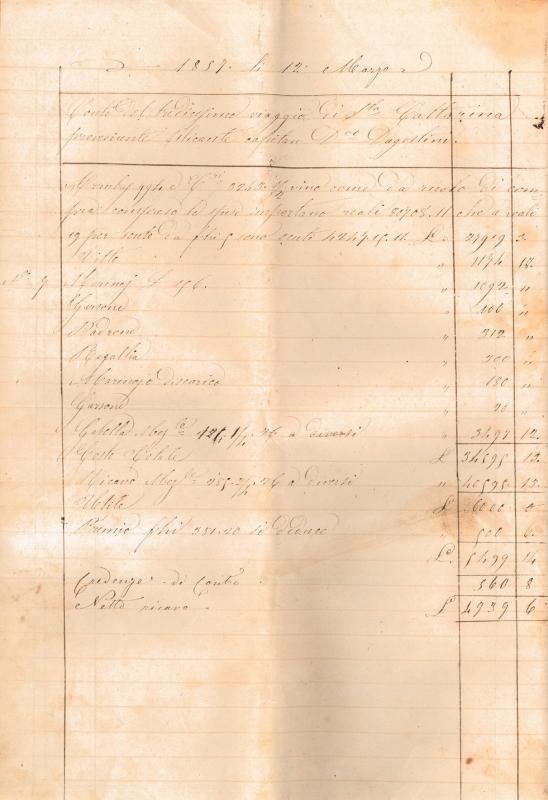 1857. li 12. Marzo
Conto del tredicesimo viaggio di Sta Catterina
proveniente Alicante capitan Dagostini.
vino come da nuoto di com
pra compreso le spese importano reali 80708.11 che a reali
19 per scuto da fbi 5 sono scuti 4247.15.11 £ 3.
Vitto " 1174 12.
No. 7 Marinaj £ 156. " 1092 "
Garsone " 106 "
Padrone " 312 "
Regallia " 200 "
Marinajo discarico " 180 "
Garsone " 20 "
Gabella a diversi " 3497 12.
Costo totale £ 34595 13.
Ricavo a diversi " 40595 13.
Utile £ 6000 0
Premio fbi 251.20 si deduce 500 6.
£ 5499 14
Credenze di Conto 560 8
Netto ricavo £ 4939 6